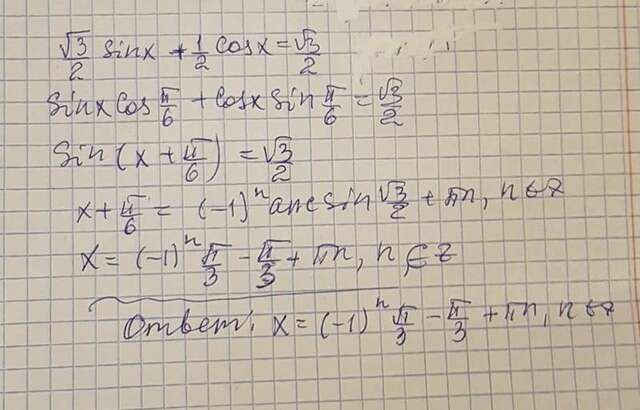 √3/2 sinx + 1/2 cosx = √3/2
sinx cos π/6 + cosx sin π/6 = √3/2
sin(x + π/6) = √3/2
x + π/6 = (-1)ⁿ arcsin √3/2 + πn, n∈z
x = (-1)ⁿ π/3 - π/3 + πn, n∈z
Ответ: x = (-1)ⁿ π/3 - π/3 + πn, n∈z